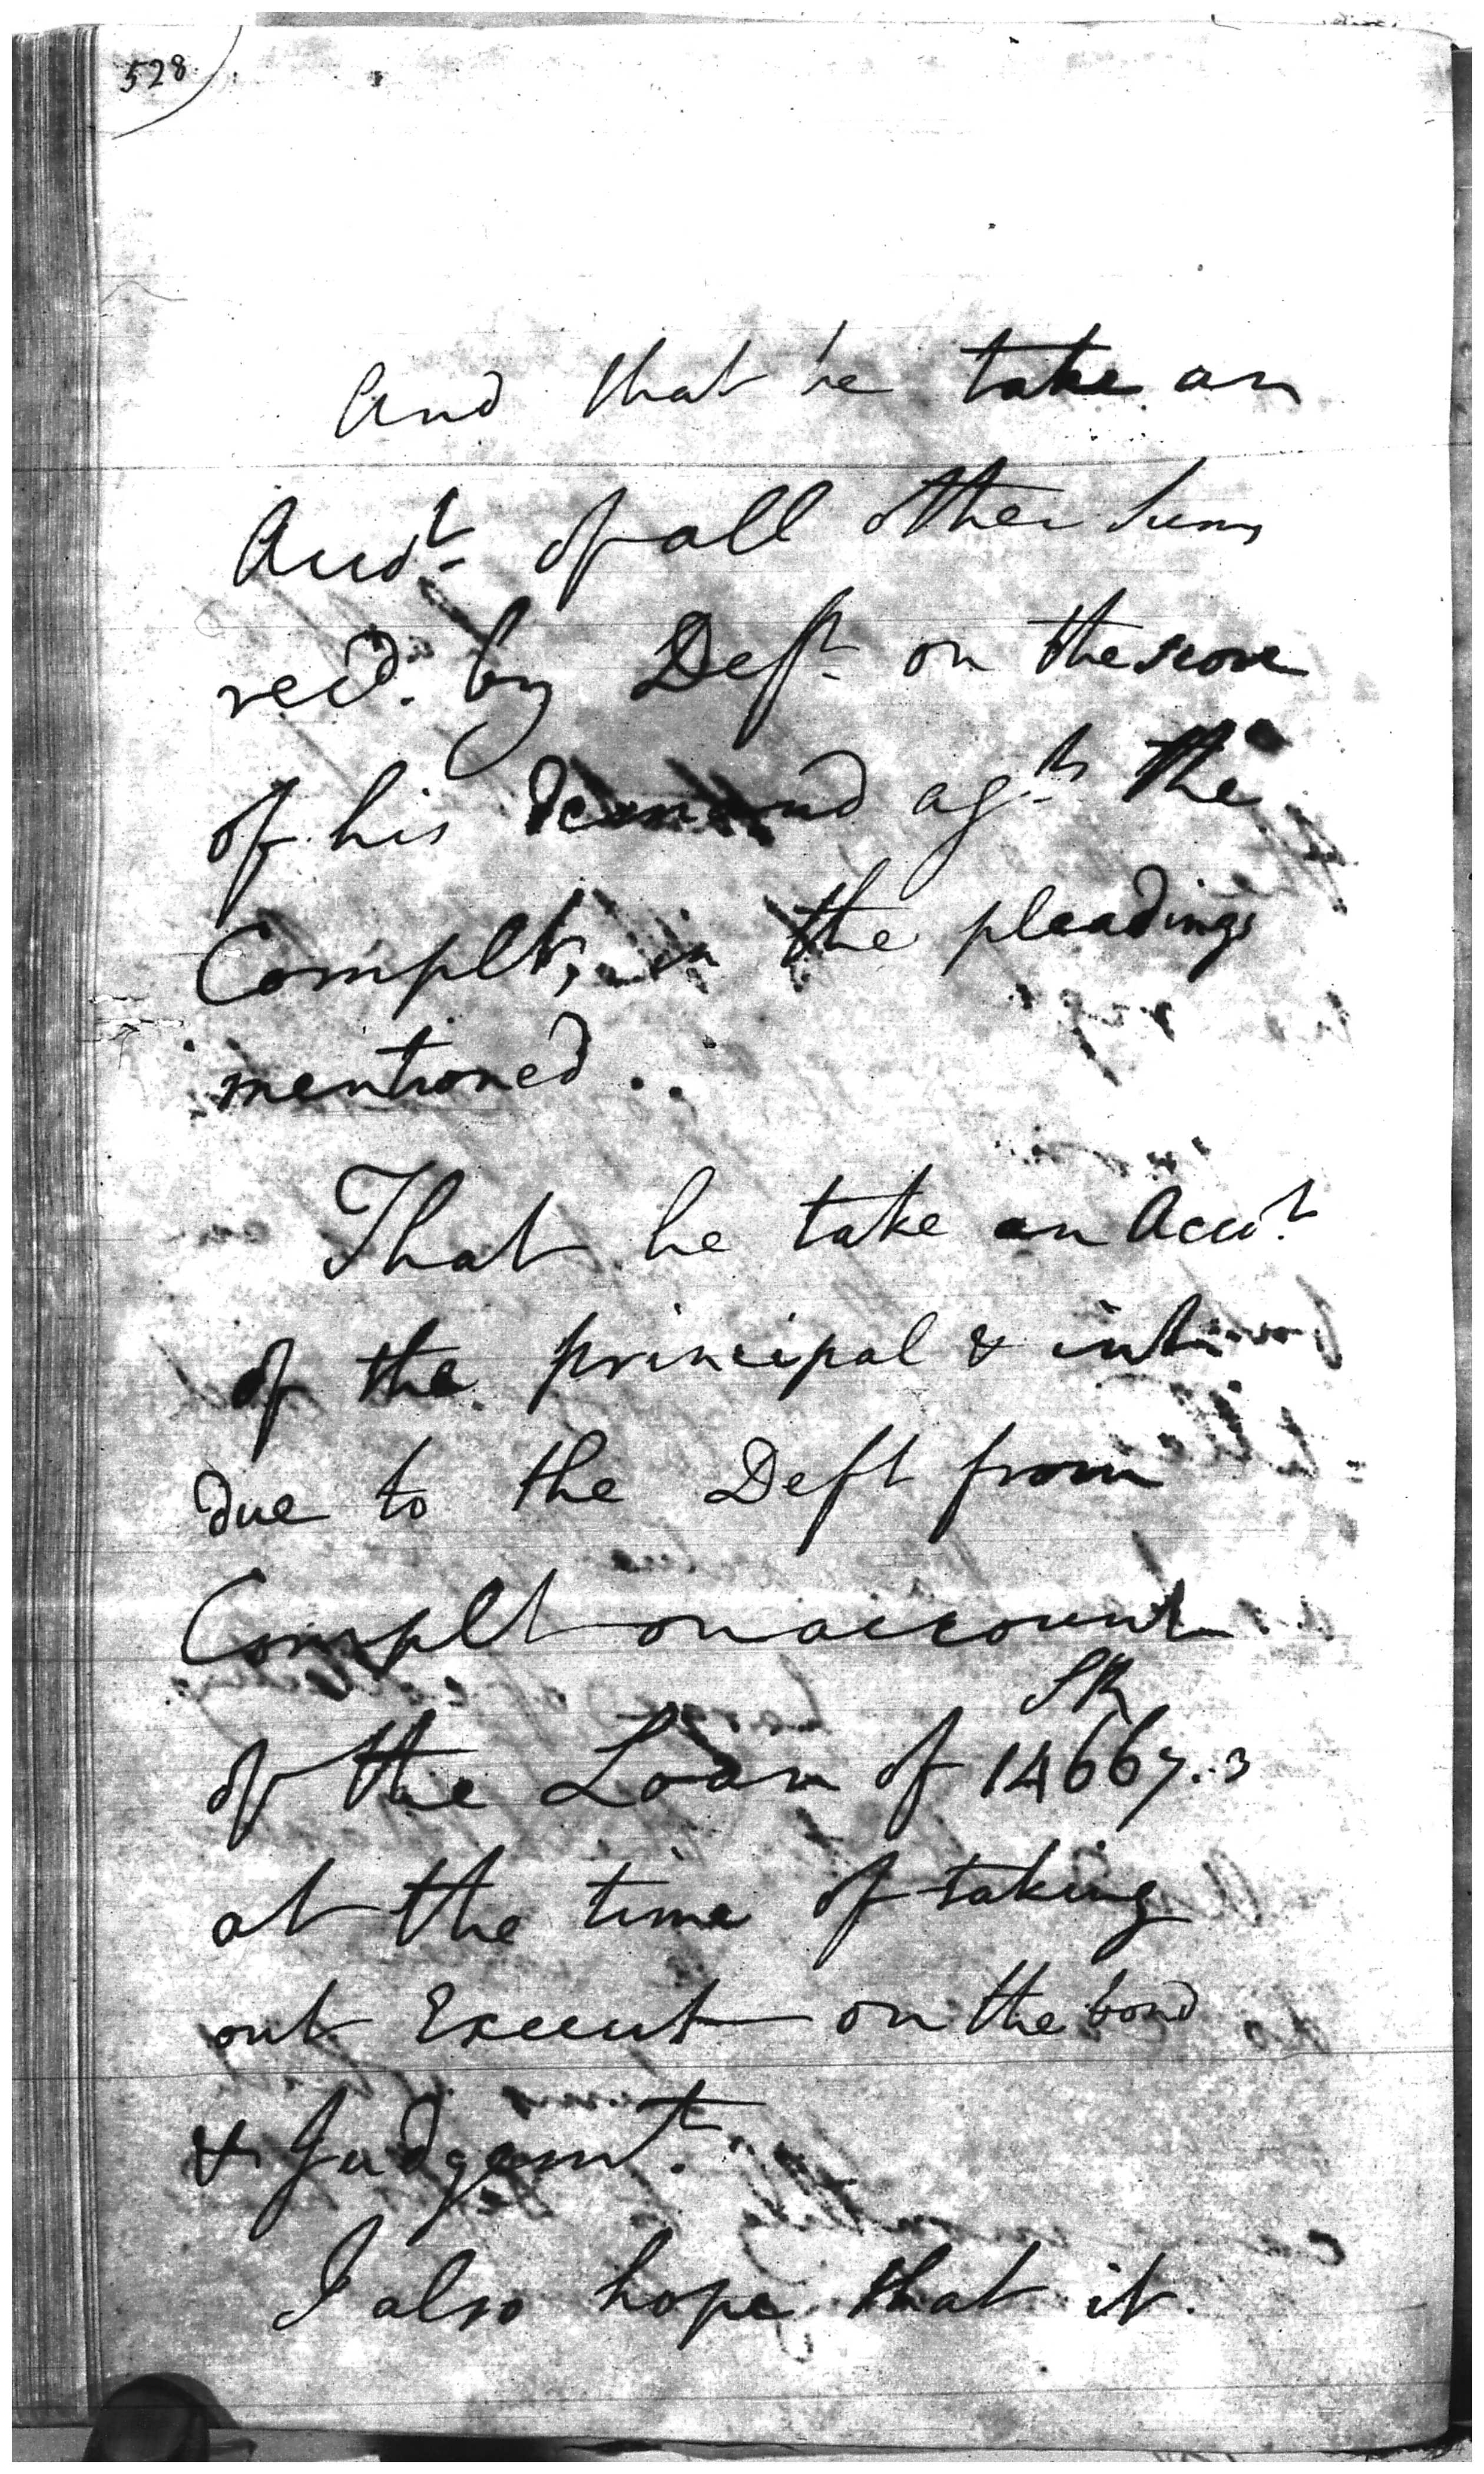 528
And that he take an
Accot. of all other Sums
recd. by Deft. on the score
of his demand agst. the
Complt, in the pleadings
mentioned..
That he take an Accot.
of the principal & int
due to the Deft from
Complt on account
SR
of the Loan of 14667..3
at the time of taking
out Execut on the bond
& Judgemt.
I also hope that it